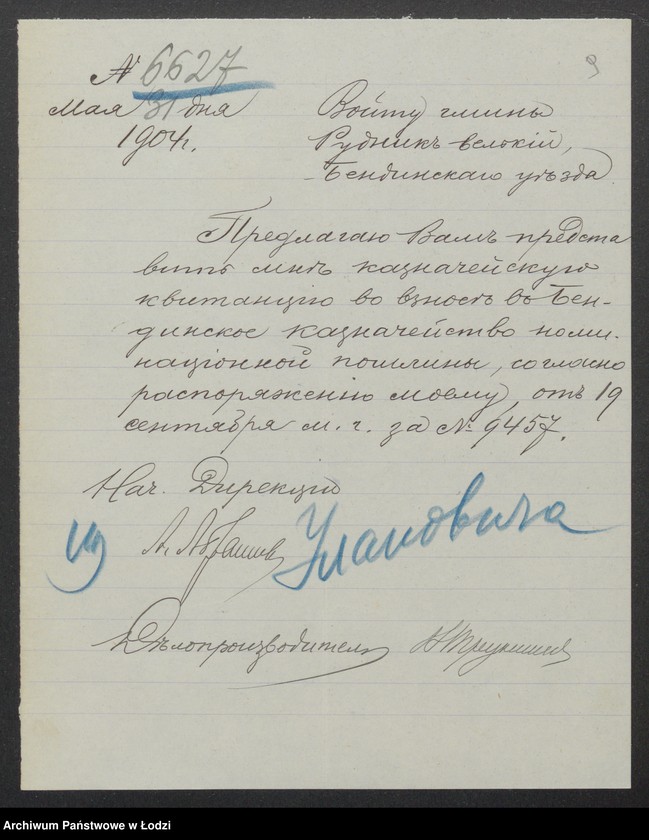 № 6627
9
Мая 31 дня
1904 г.
Войту гмины
Рудникъ велокій,
Бендинскаго уѣзда
Предлагаю Вамъ предста
вить мнѣ казначейскую
квитанцію во взносѣ въ Бен-
динское казначейство номи-
націонной пошлины, согласно
распоряженію моему, отъ 19
сентября м. г. за № 9457.
Нач. Дирекціи
А.
Улановича
Дѣлопроизводитель
Archiwum Państwowe w Łodzi